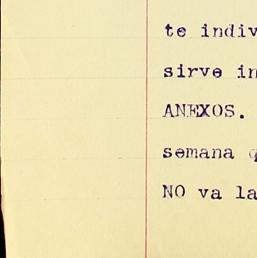 te indiv
sirve in
ANEXOS.
semana q
NO va la